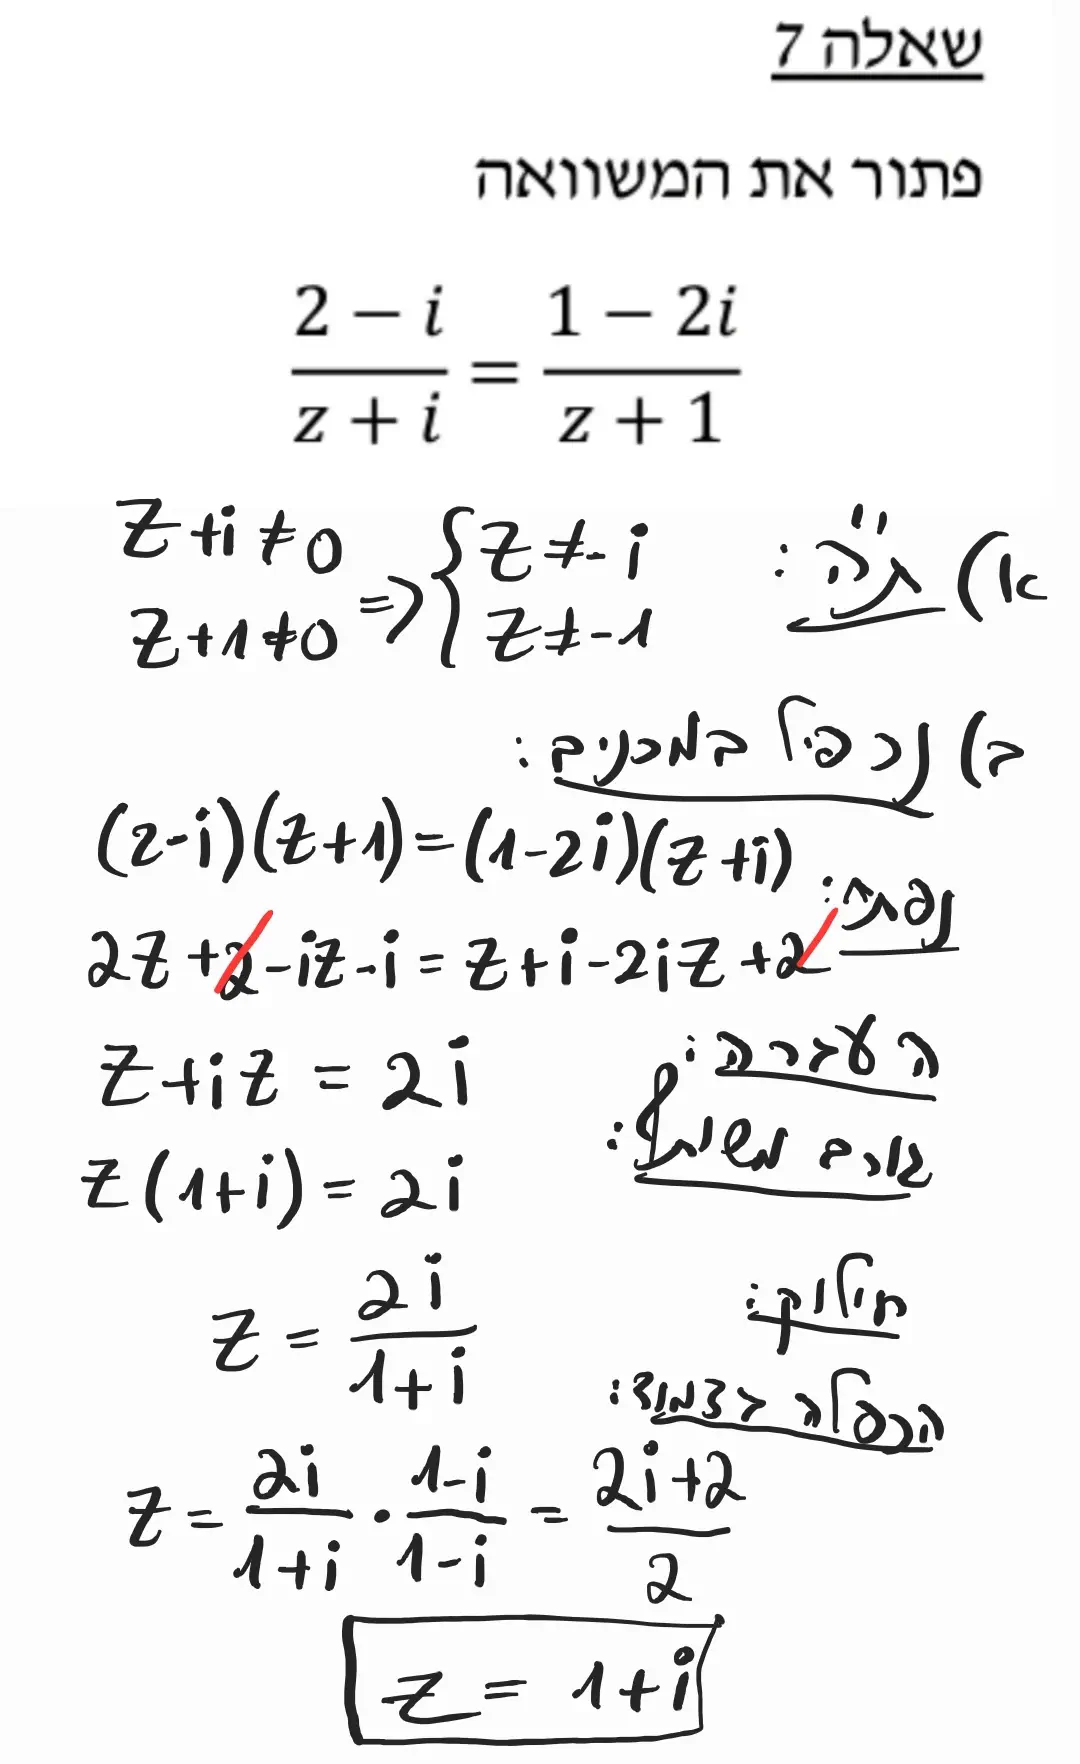 שאלה 7
פתור את המשוואה
(2 − i)/(z + i) = (1 − 2i)/(z + 1)
א) ת"ה:
z+i≠0 => { z≠-i
z+1≠0 z≠-1
ב) נכפיל במכנים:
(2-i)(z+1)=(1-2i)(z+i)
נפתח:
2z+2-iz-i = z+i-2iz+2
העברה:
z+iz = 2i
גורם משותף:
z(1+i) = 2i
חילוק:
z = 2i/(1+i)
הכפלה בצמוד:
z = 2i/(1+i) · (1-i)/(1-i) = (2i+2)/2
z = 1+i